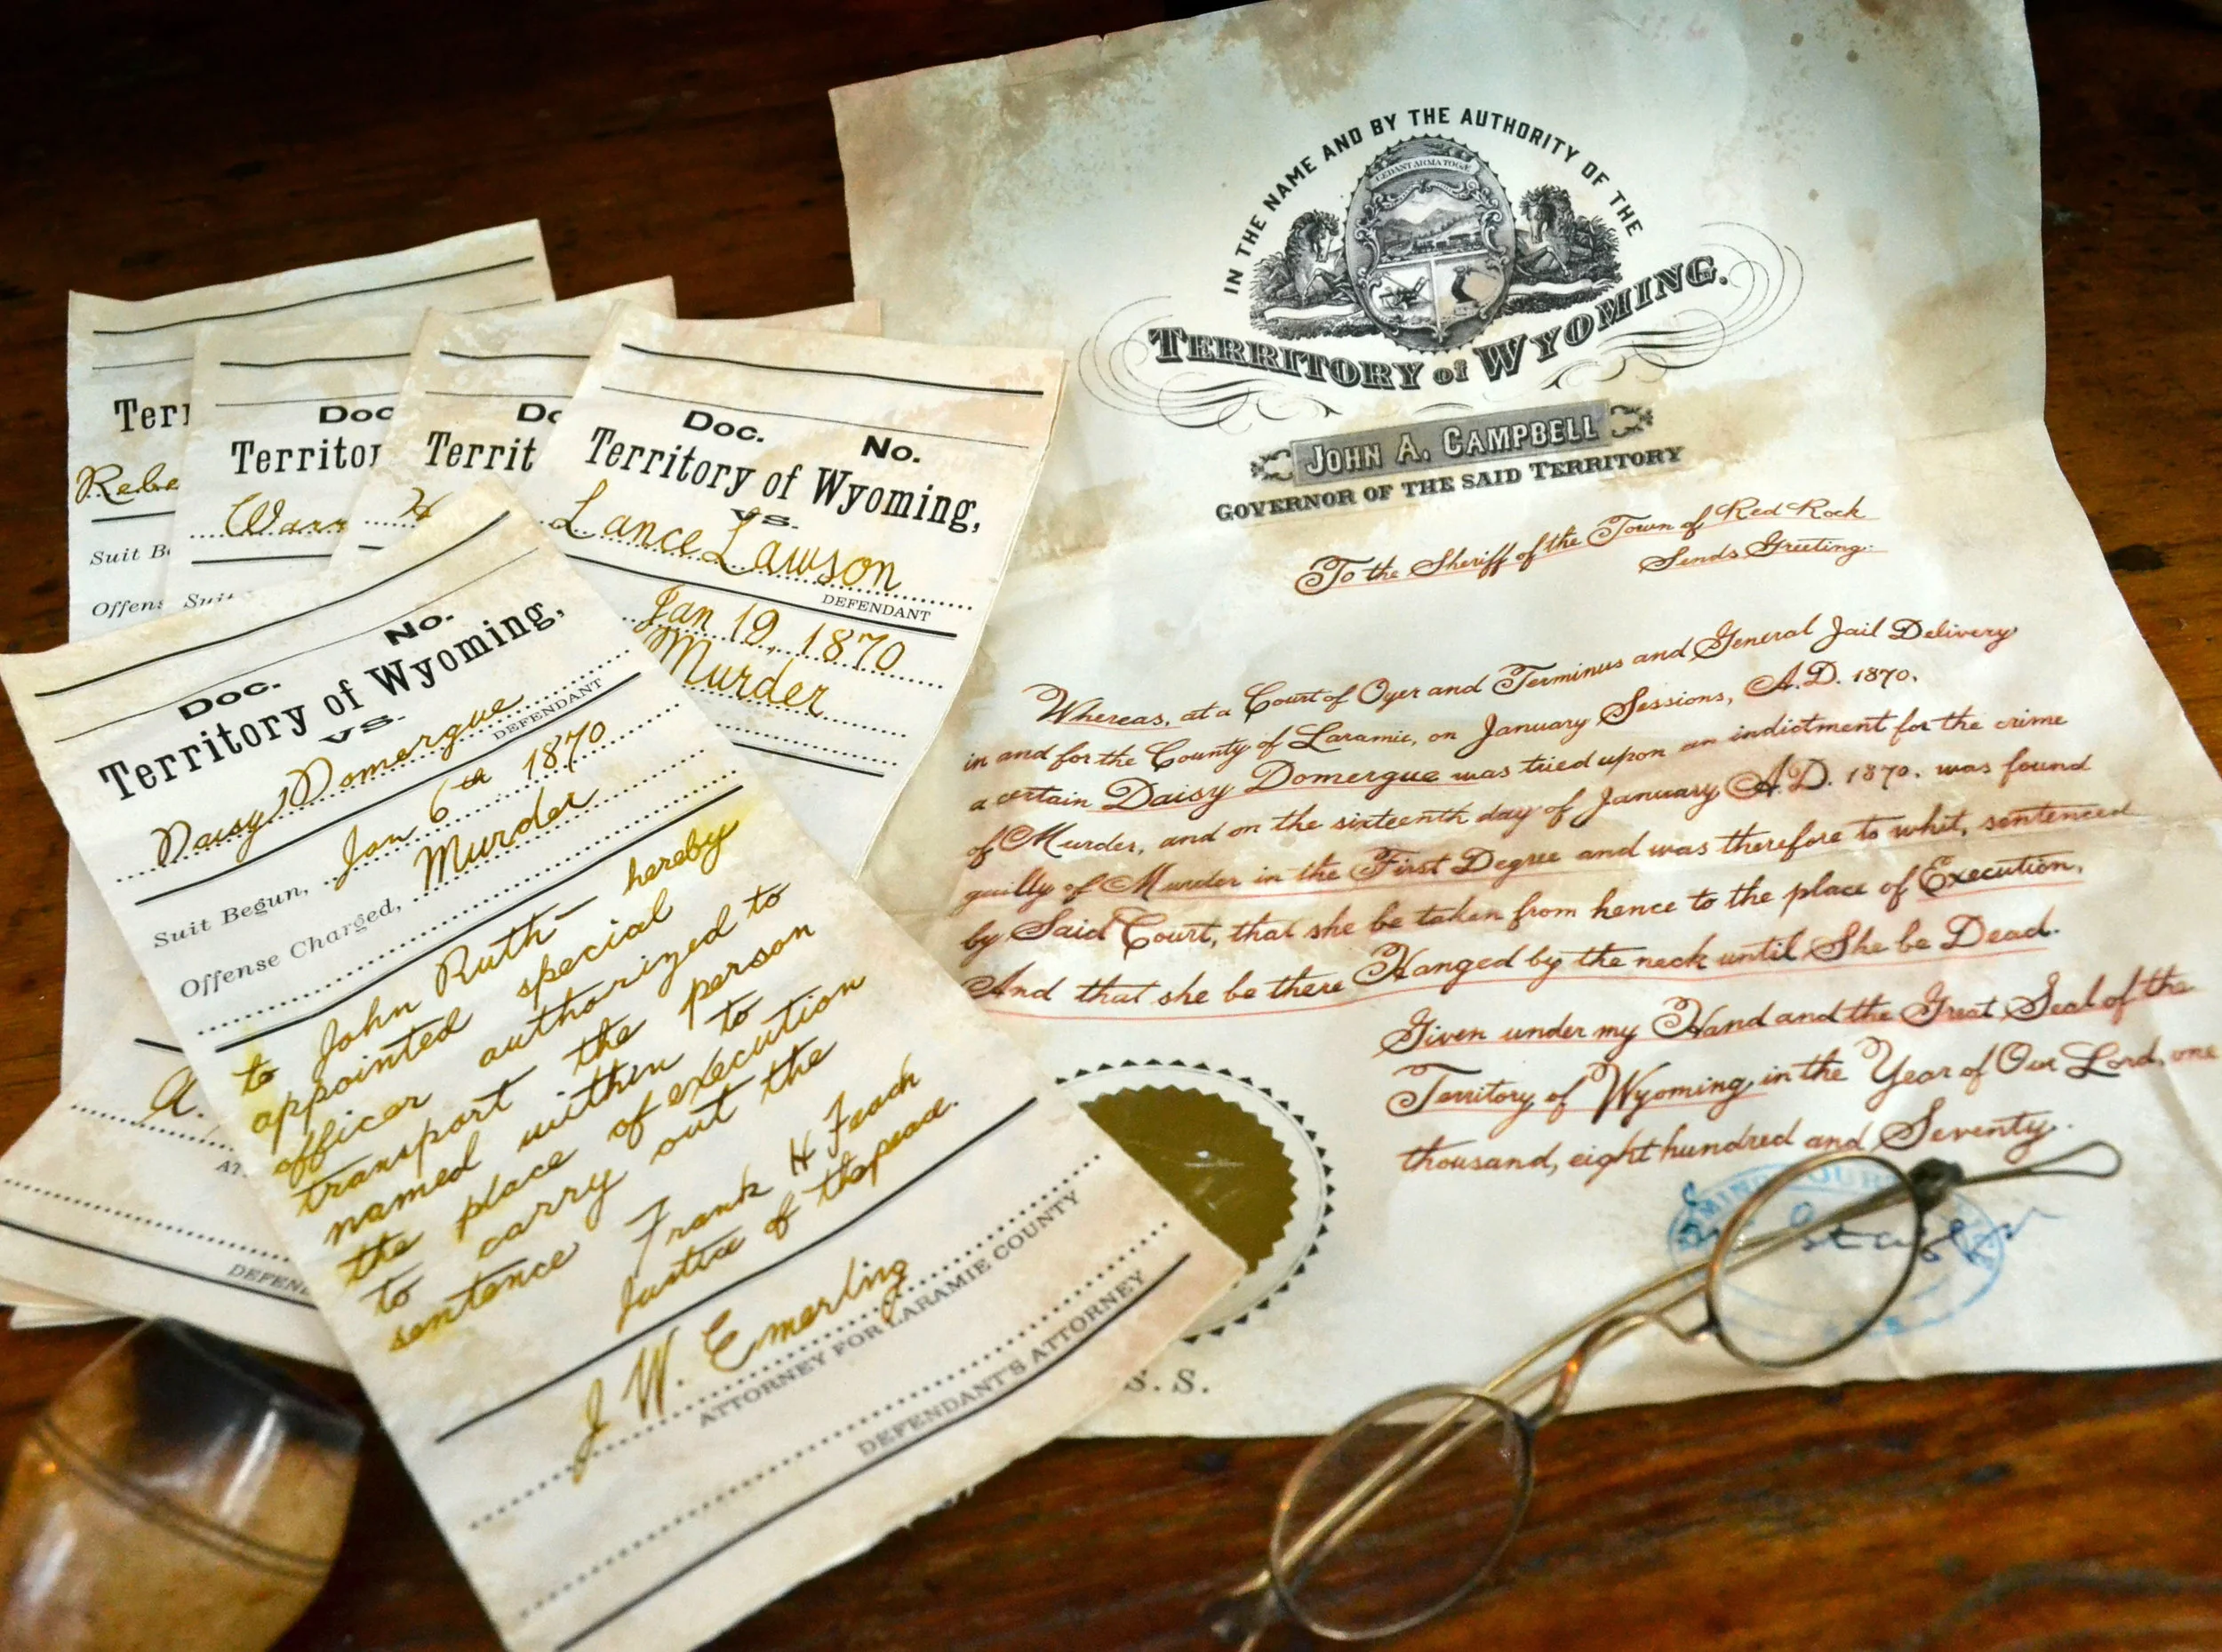 Terr
Rebe
Suit B
Offens
Doc
Territor
Warr
Suit
Do
Territ
H
Doc. No.
Territory of Wyoming,
vs.
Lance Lawson
DEFENDANT
Jan 19, 1870
Murder
Doc. No.
Territory of Wyoming,
vs.
Daisy Domergue
DEFENDANT
Suit Begun, Jan 6th 1870
Offense Charged, Murder
to John Ruth hereby
appointed special
officer authorized to
transport the person
named within to
the place of execution
to carry out the
sentence
Frank H
Justice of
J W. Emerling
ATTORNEY FOR LARAMIE COUNTY
DEFENDANT'S ATTORNEY
A.
AT
DEFEN
IN THE NAME AND BY THE AUTHORITY OF THE
CEDANT ARMA TOGÆ
TERRITORY of WYOMING.
JOHN A. CAMPBELL
GOVERNOR OF THE SAID TERRITORY
To the Sheriff of the Town of Red Rock
Sends Greeting:
Whereas, at a Court of Oyer and Terminus and General Jail Delivery
in and for the County of Laramie, on January Sessions, A.D. 1870,
a certain Daisy Domergue was tried upon an indictment for the crime
of Murder, and on the sixteenth day of January A.D. 1870. was found
guilty of Murder in the First Degree and was therefore to whit, sentenced
by Said Court, that she be taken from hence to the place of Execution,
And that she be there Hanged by the neck until She be Dead.
Given under my Hand and the Great Seal of the
Territory of Wyoming in the Year of Our Lord, one
thousand, eight hundred and Seventy.
S. S.